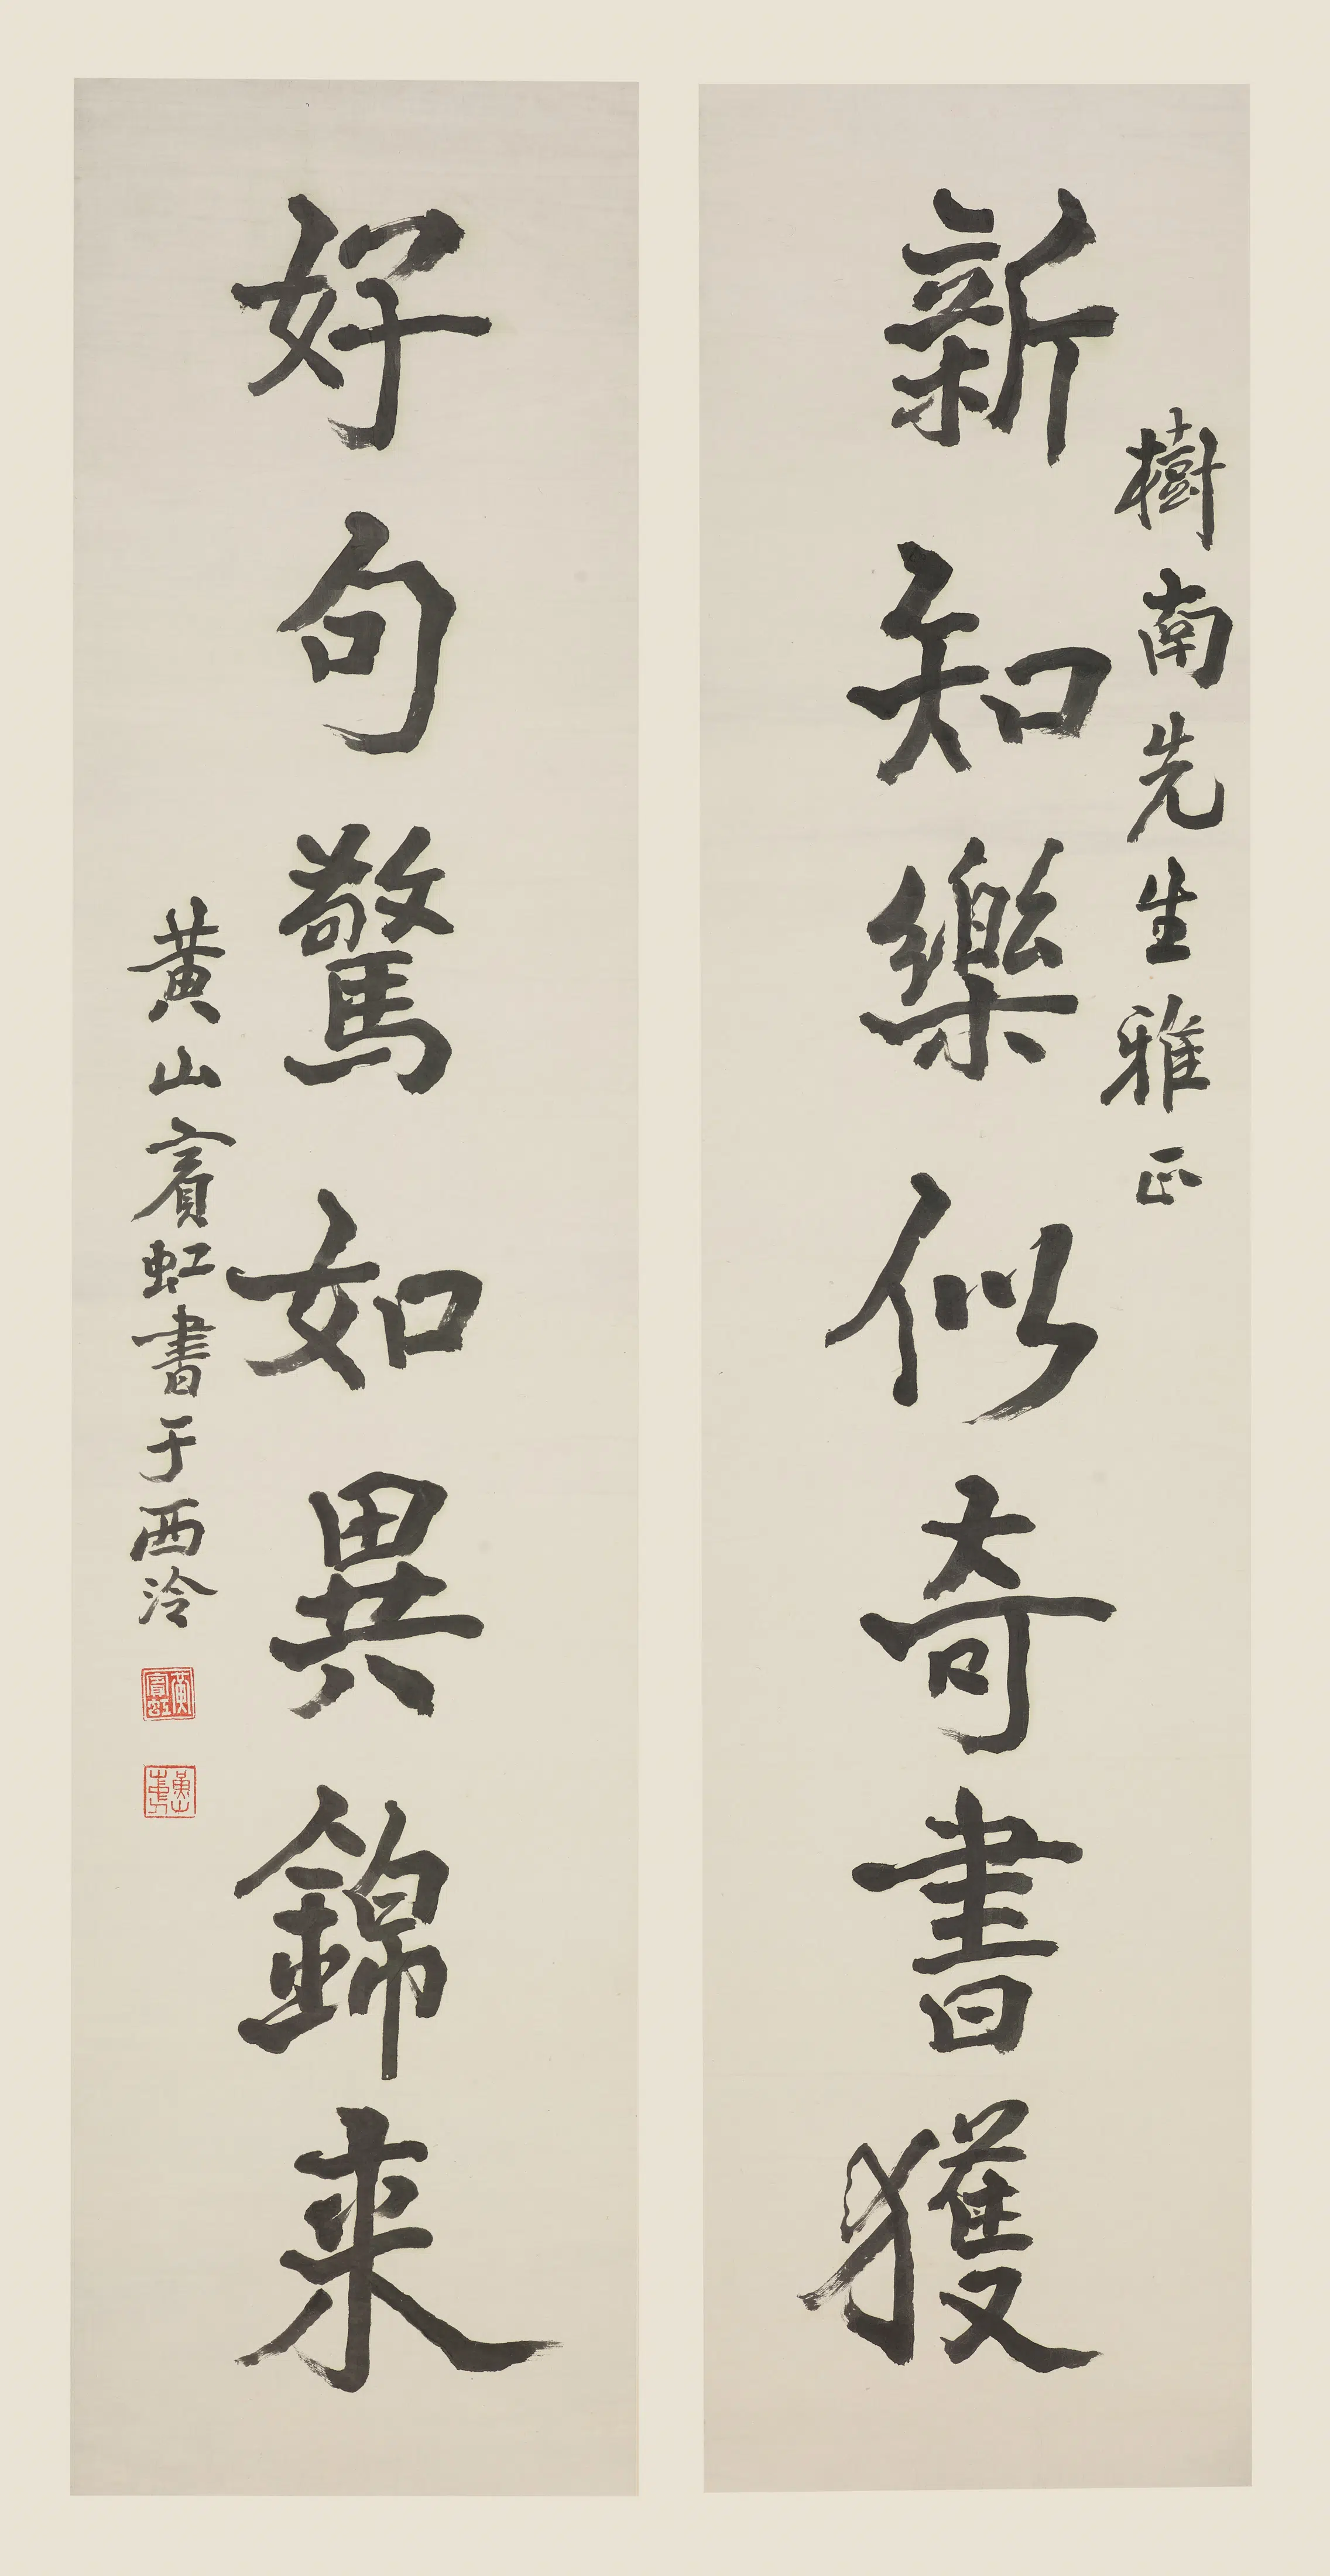 樹南先生雅正
新知樂似奇書獲
好句驚如異錦来
黄山賓虹書于西泠
黄賓虹